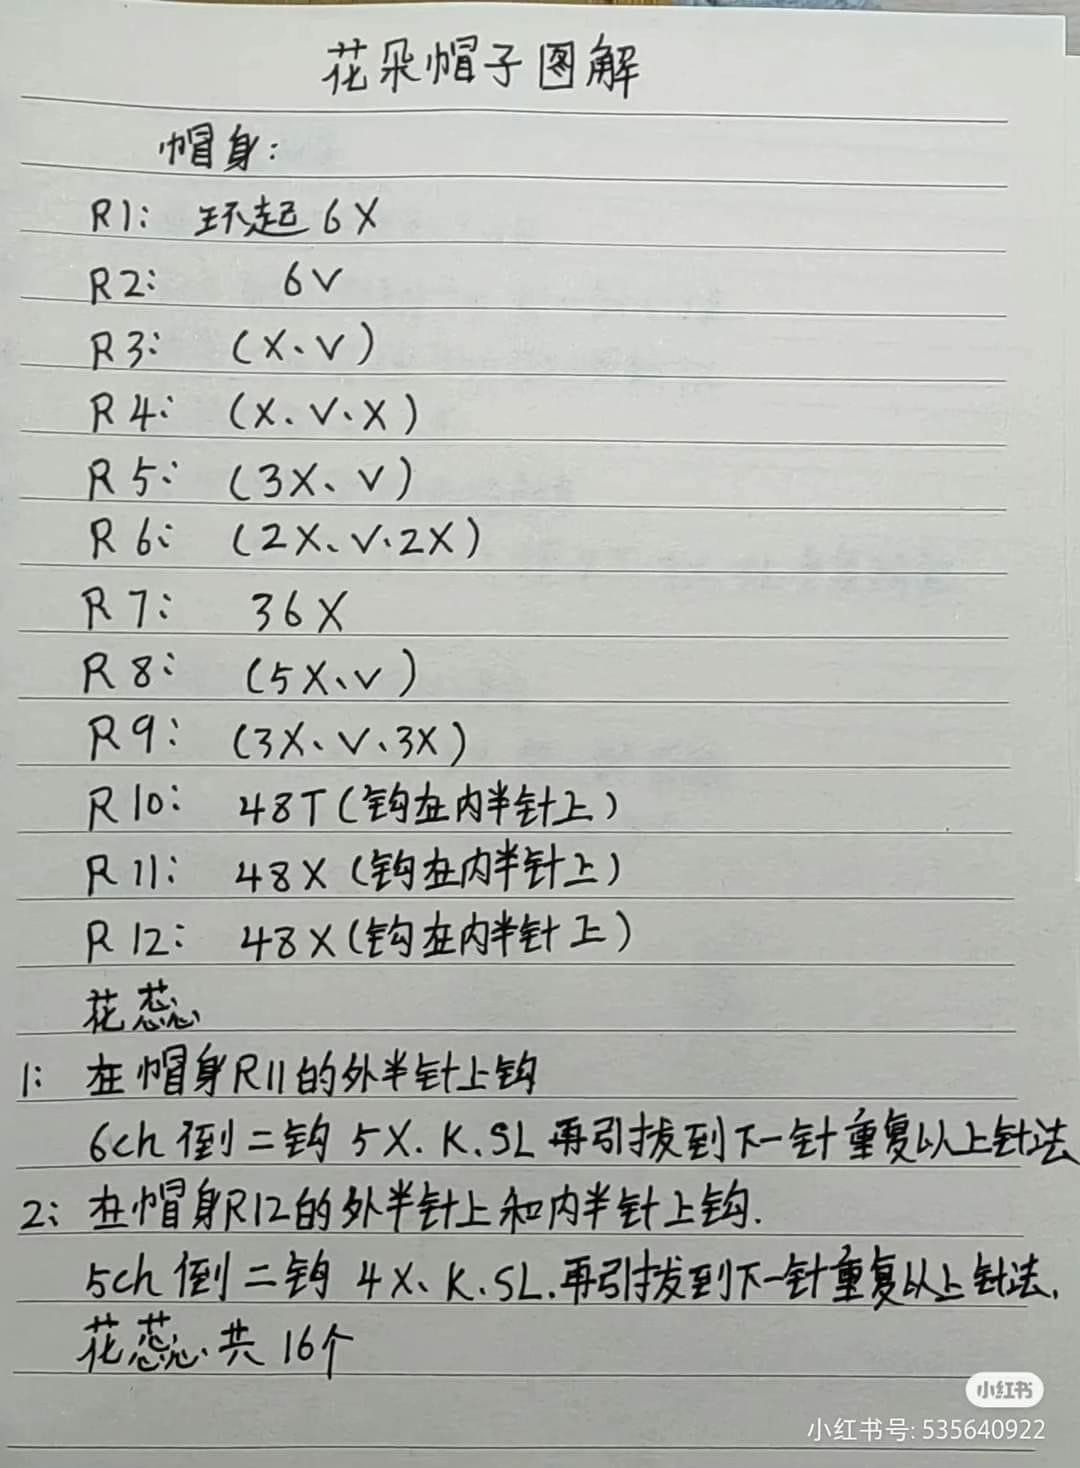 花朵帽子图解
帽身:
R1: 环起 6X
R2: 6V
R3: (X、V)
R4: (X、V、X)
R5: (3X、V)
R6: (2X、V、2X)
R7: 36X
R8: (5X、V)
R9: (3X、V、3X)
R10: 48T (钩在内半针上)
R11: 48X (钩在内半针上)
R12: 48X (钩在内半针上)
花蕊
1: 在帽身R11的外半针上钩
6ch 倒二钩 5X. K. SL 再引拔到下一针重复以上针法
2: 在帽身R12的外半针上和内半针上钩.
5ch 倒二钩 4X、K. SL. 再引拔到下一针重复以上针法.
花蕊共16个
小红书
小红书号: 535640922